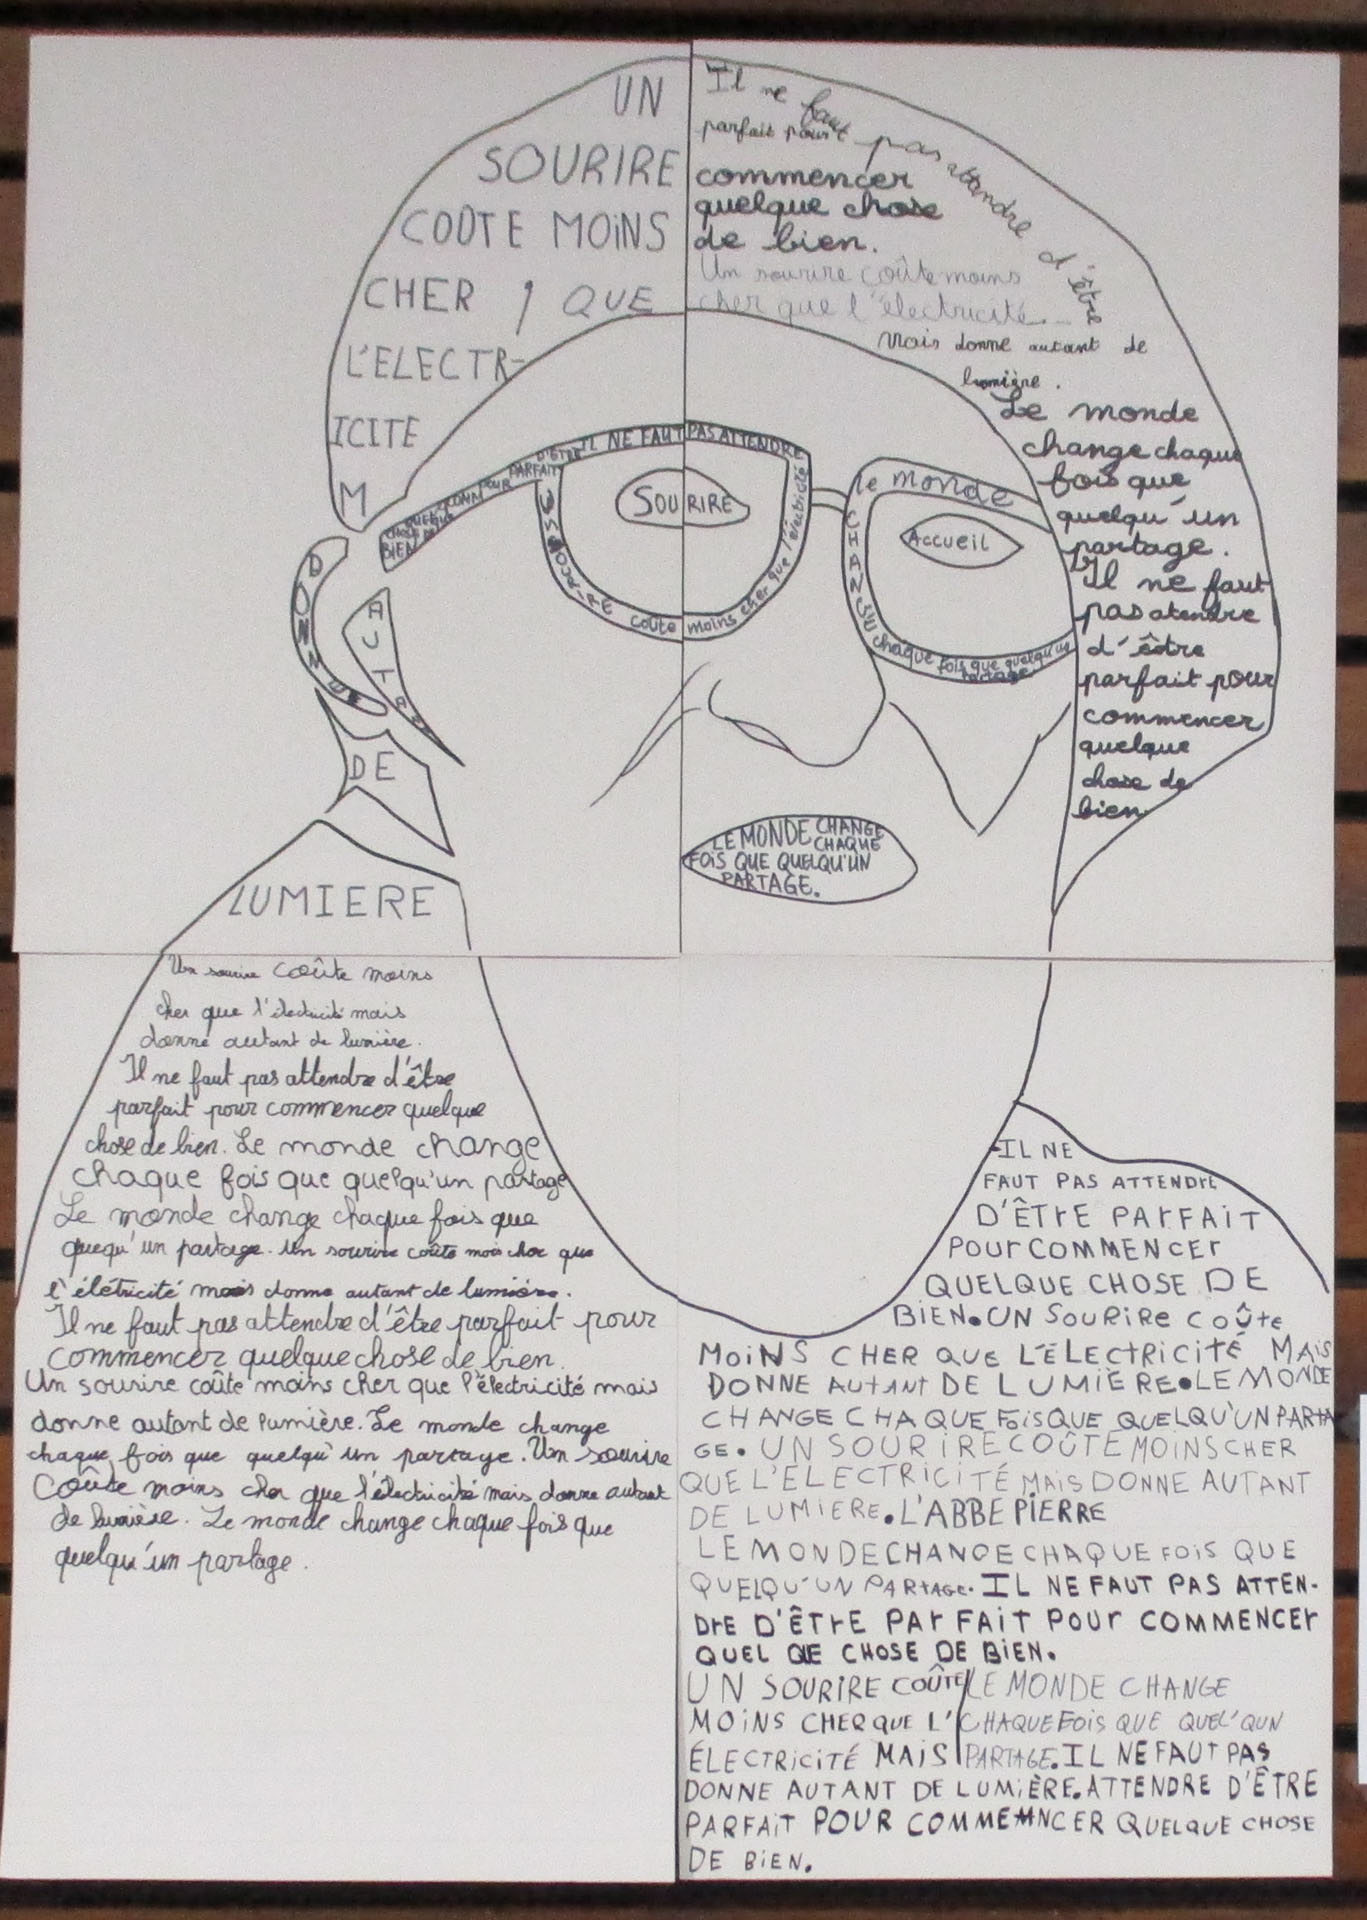 UN
SOURIRE
COÛTE MOINS
CHER, QUE
L'ELECTR-
ICITE
M
DONNE
AUTAN
DE
LUMIERE
Il ne faut pas attendre d'être
parfait pour
commencer
quelque chose
de bien.
Un sourire coûte moins
cher que l'électricité...
Mais donne autant de
lumière.
Le monde
change chaque
fois que
quelqu'un
partage.
Il ne faut
pas atendre
d'être
parfait pour
commencer
quelque
chose de
bien
IL NE FAUT PAS ATTENDRE
D'ÊTRE
PARFAIT
POUR
COMM
QUELQUE
CHOSE DE
BIEN
UN SOURIRE coûte moins cher que l'électricité
SOURIRE
le monde
CHAN
chaque fois que quelqu'un
partage
Accueil
LE MONDE CHANGE
CHAQUE
FOIS QUE QUELQU'UN
PARTAGE.
Un sourire coûte moins
cher que l'électricité mais
donne autant de lumière.
Il ne faut pas attendre d'être
parfait pour commencer quelque
chose de bien. Le monde change
chaque fois que quelqu'un partage
Le monde change chaque fois que
quequ'un partage. Un sourire coûte mois cher que
l'élétricité mais donne autant de lumière.
Il ne faut pas attendre d'être parfait pour
commencer quelque chose de bien.
Un sourire coûte moins cher que l'électricité mais
donne autant de lumière. Le monde change
chaque fois que quelqu'un partage. Un sourire
coûte moins cher que l'électricité mais donne autant
de lumière. Le monde change chaque fois que
quelqu'un partage.
IL NE
FAUT PAS ATTENDrE
D'ÊTrE PArFAIT
POUr COMMENCEr
QUELQUE CHOSE DE
BIEN. UN SOURIRE COÛTE
MOINS CHER QUE L'ÉLECTRICITÉ MAIS
DONNE AUTANT DE LUMIÈRE. LE MONDE
CHANGE CHAQUE FOIS QUE QUELQU'UN PARTA
GE. UN SOURIRE COÛTE MOINS CHER
QUE L'ÉLECTRICITÉ MAIS DONNE AUTANT
DE LUMIERE. L'ABBE PIERRE
LE MONDE CHANGE CHAQUE FOIS QUE
QUELQU'UN PARTAGE. IL NE FAUT PAS ATTEN-
DrE D'ÊTrE PArFAIT POUr COMMENCEr
QUEL QUE CHOSE DE BIEN.
UN SOURIRE COÛTE/LE MONDE CHANGE
MOINS CHER QUE L'/CHAQUE FOIS QUE QUEL'QUN
ÉLECTRICITÉ MAIS/PARTAGE. IL NE FAUT PAS
DONNE AUTANT DE LUMIÈRE. ATTENDRE D'ÊTRE
PARFAIT POUR COMMENCER QUELQUE CHOSE
DE BIEN.